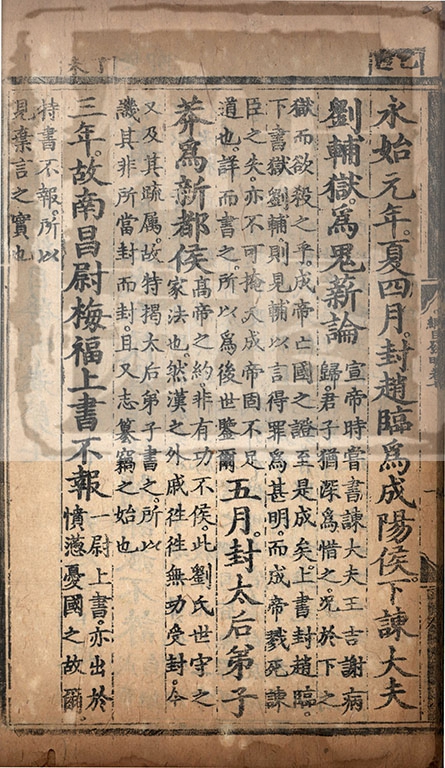 永始元年。夏四月。封趙臨為成陽侯。下諫大夫
劉輔獄。為鬼新論
宣帝時嘗書諫大夫王吉謝病
歸。君子猶深為惜之。况於下之
獄而欲殺之乎。成帝亡國之證。至是成矣。上書封趙臨。
下書獄劉輔。則見輔以言得罪為甚明。而成帝戮死諫
臣之失。亦不可掩矣。成帝固不足
道也。詳而書之。所以為後世鑒爾
五月。封太后弟子
莽為新都侯
高帝之約。非有功不侯。此劉氏世守之
家法也。然漢之外戚。徃徃無功受封。今
又及其疏属。故特揭太后弟子書之。所以
譏其非所當封而封。且又志簒竊之始也
三年。故南昌尉梅福上書不報
一尉上書。亦出於
憤懣憂國之故爾。
特書不報。所以
見棄言之實也